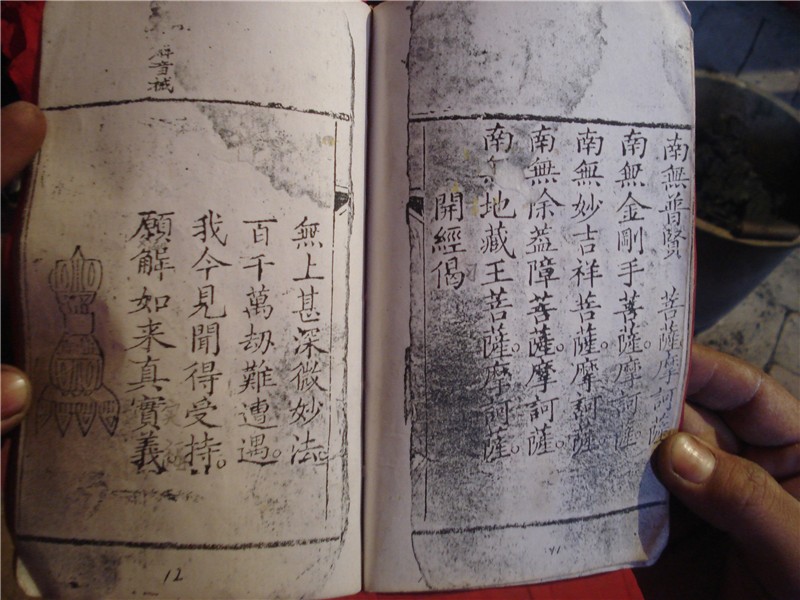 南無普賢 菩薩摩訶薩
南無金剛手菩薩。摩訶薩。
南無妙吉祥菩薩。摩訶薩
南無除葢障菩薩。摩訶薩。
南 地藏王菩薩。摩訶薩。
開經偈
無上甚深微妙法。
百千萬劫難遭遇。
我今見聞得受持。
願解如来真實義。
12